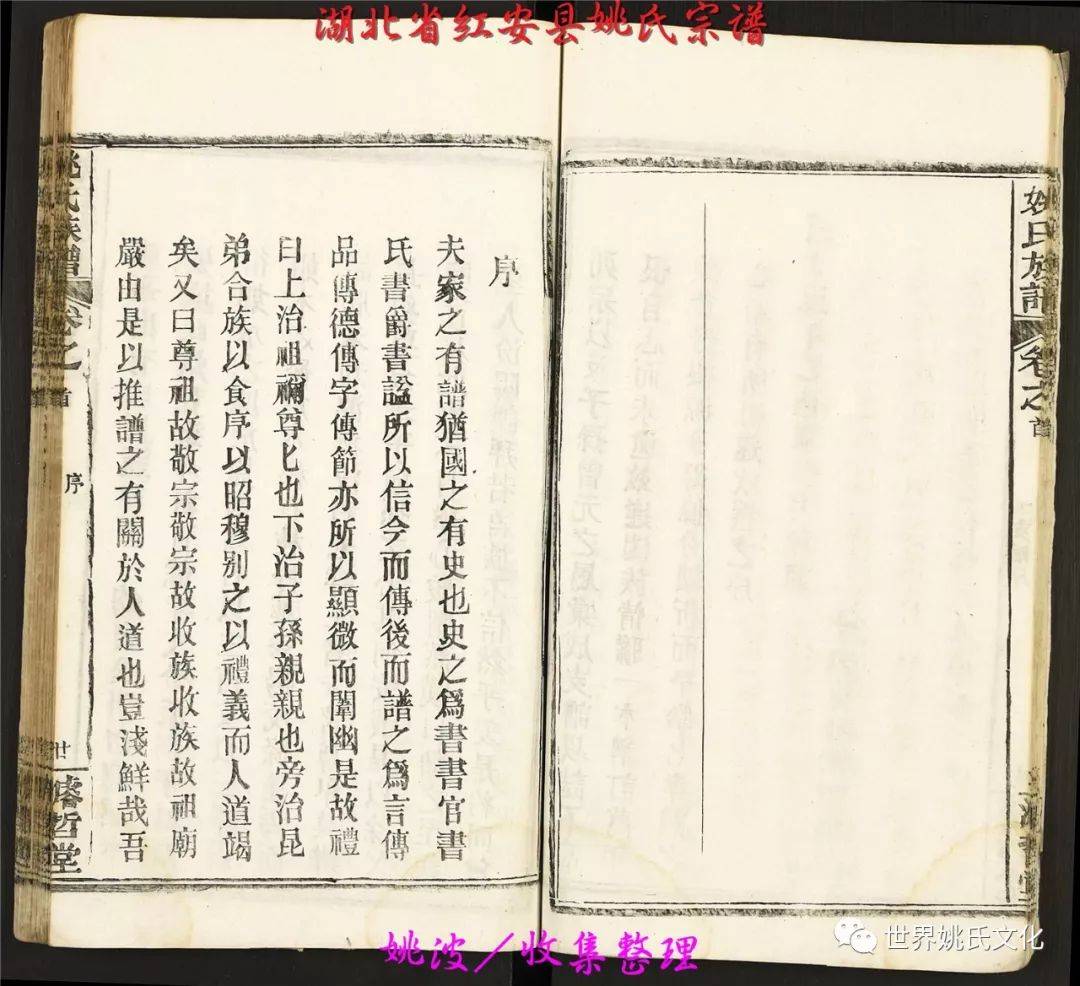 湖北省红安县姚氏宗谱
姚氏族譜
卷之
首
序
夫家之有譜猶國之有史也史之爲書書官書
氏書爵書諡所以信今而傳後而譜之爲言傳
品傳德傳字傳節亦所以顯微而闡幽是故禮
曰上治祖禰尊尊也下治子孫親親也旁治昆
弟合族以食序以昭穆别之以禮義而人道竭
矣又曰尊祖故敬宗敬宗故收族收族故祖廟
嚴由是以推譜之有關於人道也豈淺鮮哉吾
姚氏族譜
卷之
首
序
廿
堂
姚波/收集整理
世界姚氏文化